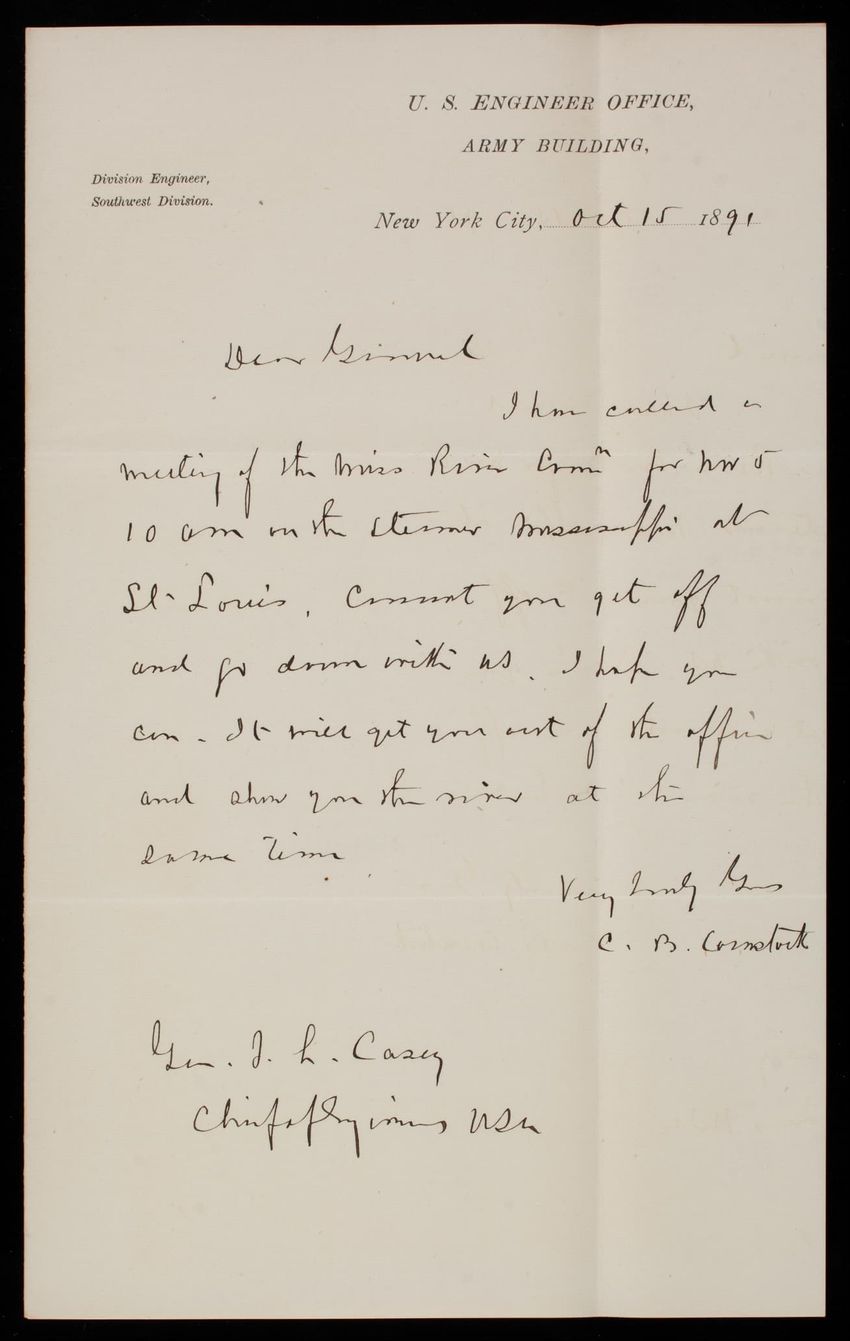 U. S. ENGINEER OFFICE,
ARMY BUILDING,
Division Engineer,
Southwest Division.
New York City, Oct 15 1891
Dear General
I have called a
meeting of the Miss River Comn for Nov 5
10 am on the steamer Mississippi at
St Louis, Cannot you get off
and go down with us. I hope you
can. It will get you out of the office
and show you the river at the
same time
Very truly Yours
C. B. Comstock
Gen. T. L. Casey
Chief of Engineers USA